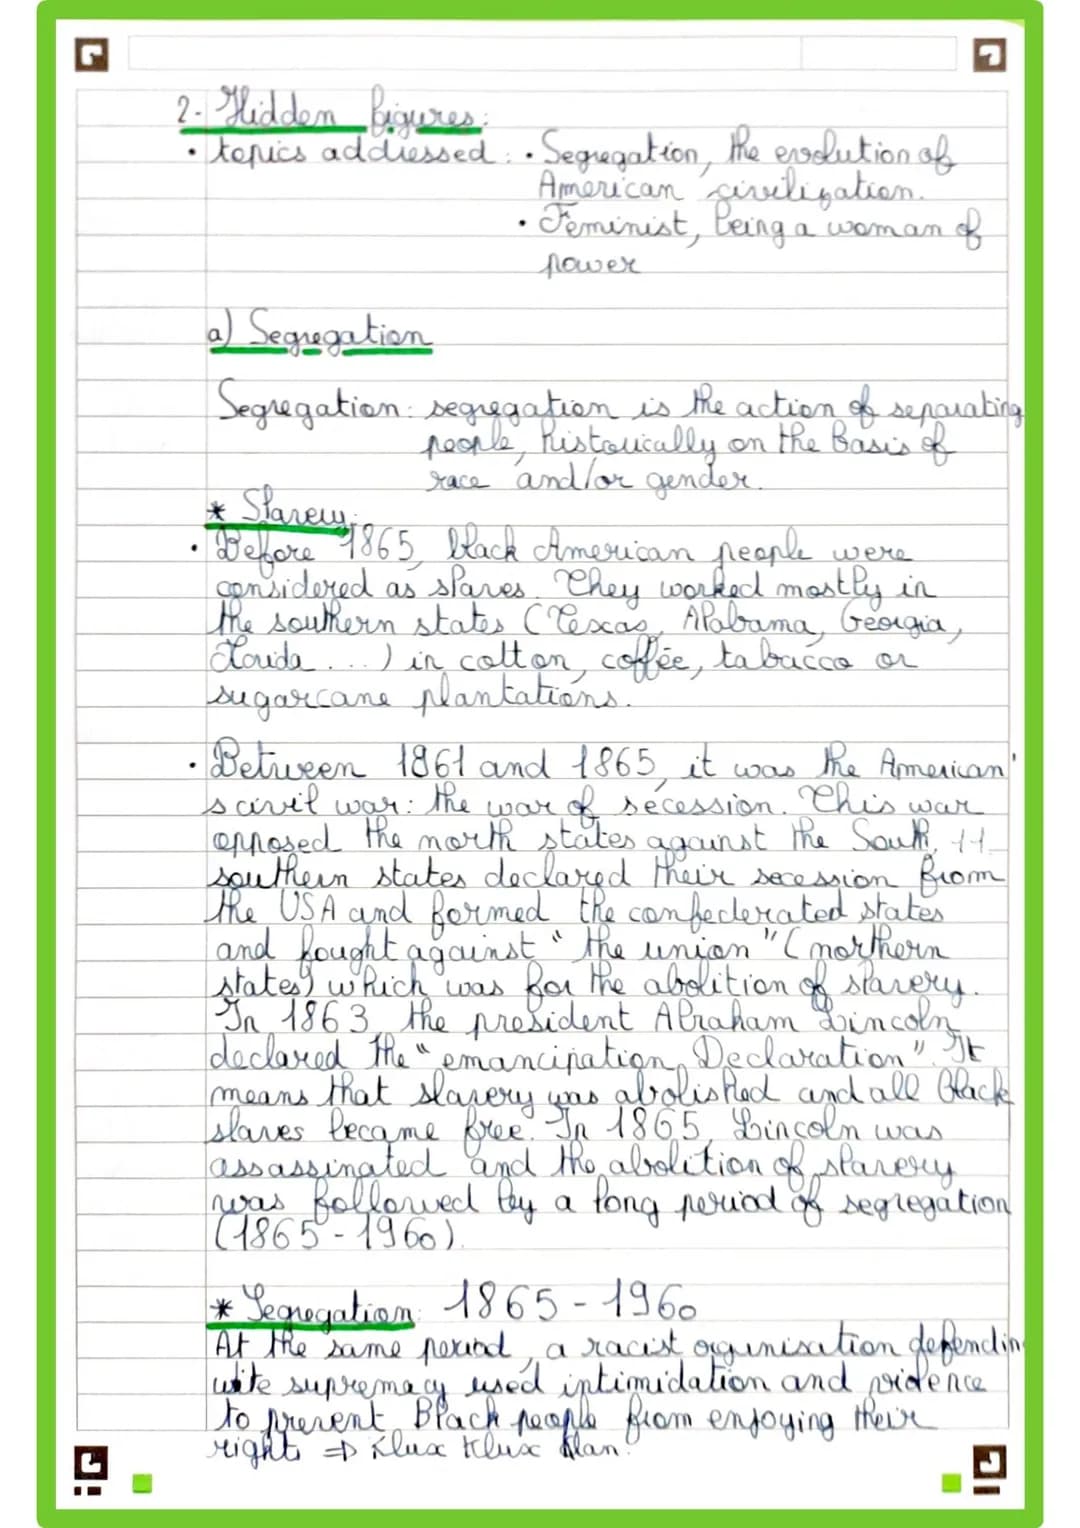 2- Hidden figures:
• topics addressed : • Segregation, the evolution of
American civilization.
• Feminist, being a woman of
power
a) Segregation
Segregation: segregation is the action of separating
people, historically on the basis of
race and/or gender.
* Slavery:
• Before 1865, black American people were
considered as slaves. They worked mostly in
the southern states (Texas, Alabama, Georgia,
Florida ...) in cotton, coffée, tabacco or
sugarcane plantations.
• Between 1861 and 1865, it was the American'
s civil war: the war of sécession. This war
opposed the north states against the South, 11
southern states declared their secession from
the USA and formed the confederated states
and fought against "the union" (northern
states) which was for the abolition of slavery.
In 1863, the president Abraham Lincoln
declared the "emancipation Declaration". It
means that slavery was abolished and all black
slaves became free. In 1865, Lincoln was
assassinated and the abolition of slavery
was followed by a long period of segregation
(1865-1960).
* Segregation: 1865-1960
At the same period, a racist organisation defending
wite supremacy used intimidation and violence
to prevent Black people from enjoying their
right => Klux Klux Klan.